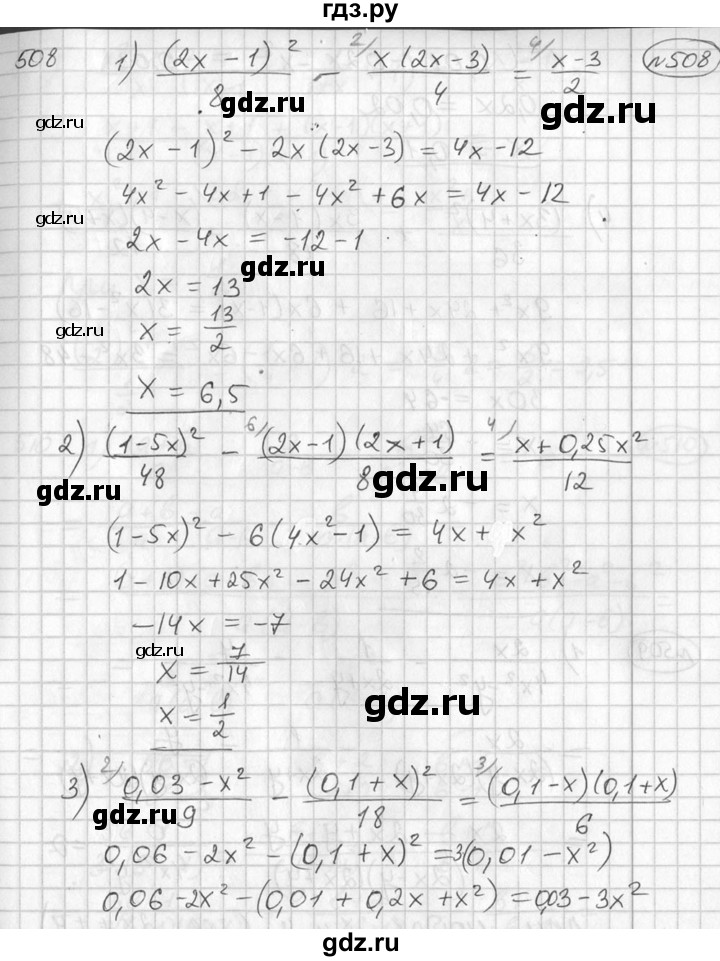 гдз.ру
508 1) (2x - 1)²/8 - ²⁾ x(2x-3)/4 = ⁴⁾ x-3/2 №508
gdz.ru
(2x - 1)² - 2x(2x-3) = 4x - 12
4x² - 4x + 1 - 4x² + 6x = 4x - 12
gdz.ru
2x - 4x = -12 - 1
gdz.ru
2x = 13
gdz.ru gdz.ru
x = 13/2
x = 6,5
2) (1-5x)²/48 - ⁶⁾ (2x-1)(2x+1)/8 = ⁴⁾ x+0,25x²/12
gdz.ru gdz.ru
(1-5x)² - 6(4x²-1) = 4x + x²
1 - 10x + 25x² - 24x² + 6 = 4x + x²
-14x = -7
gdz.ru
x = 7/14
gdz.ru
x = 1/2
3) ²⁾ 0,03 - x²/9 - (0,1 + x)²/18 = ³⁾ (0,1-x)(0,1+x)/6
gdz.ru gdz.ru
0,06 - 2x² - (0,1 + x)² = 3(0,01 - x²)
0,06 - 2x² - (0,01 + 0,2x + x²) = 0,03 - 3x²
gdz.ru gdz.ru
гдз.ру